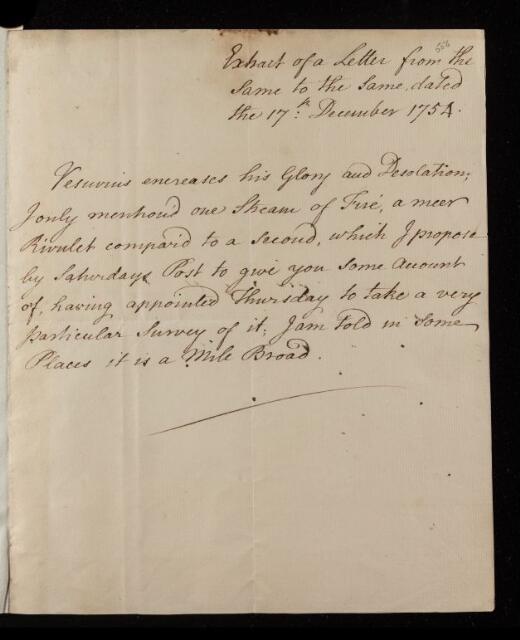 556
Extract of a Letter from the
Same to the Same, dated
the 17.th December 1754.
Vesuvius encreases his Glory and Desolation;
I only mention'd one Stream of Fire, a meer
Rivulet compair'd to a Second, which I propose
by Saturdays Post to give you some Account
of, having appointed Thursday to take a very
particular Survey of it; I am told in some
Places it is a Mile Broad.